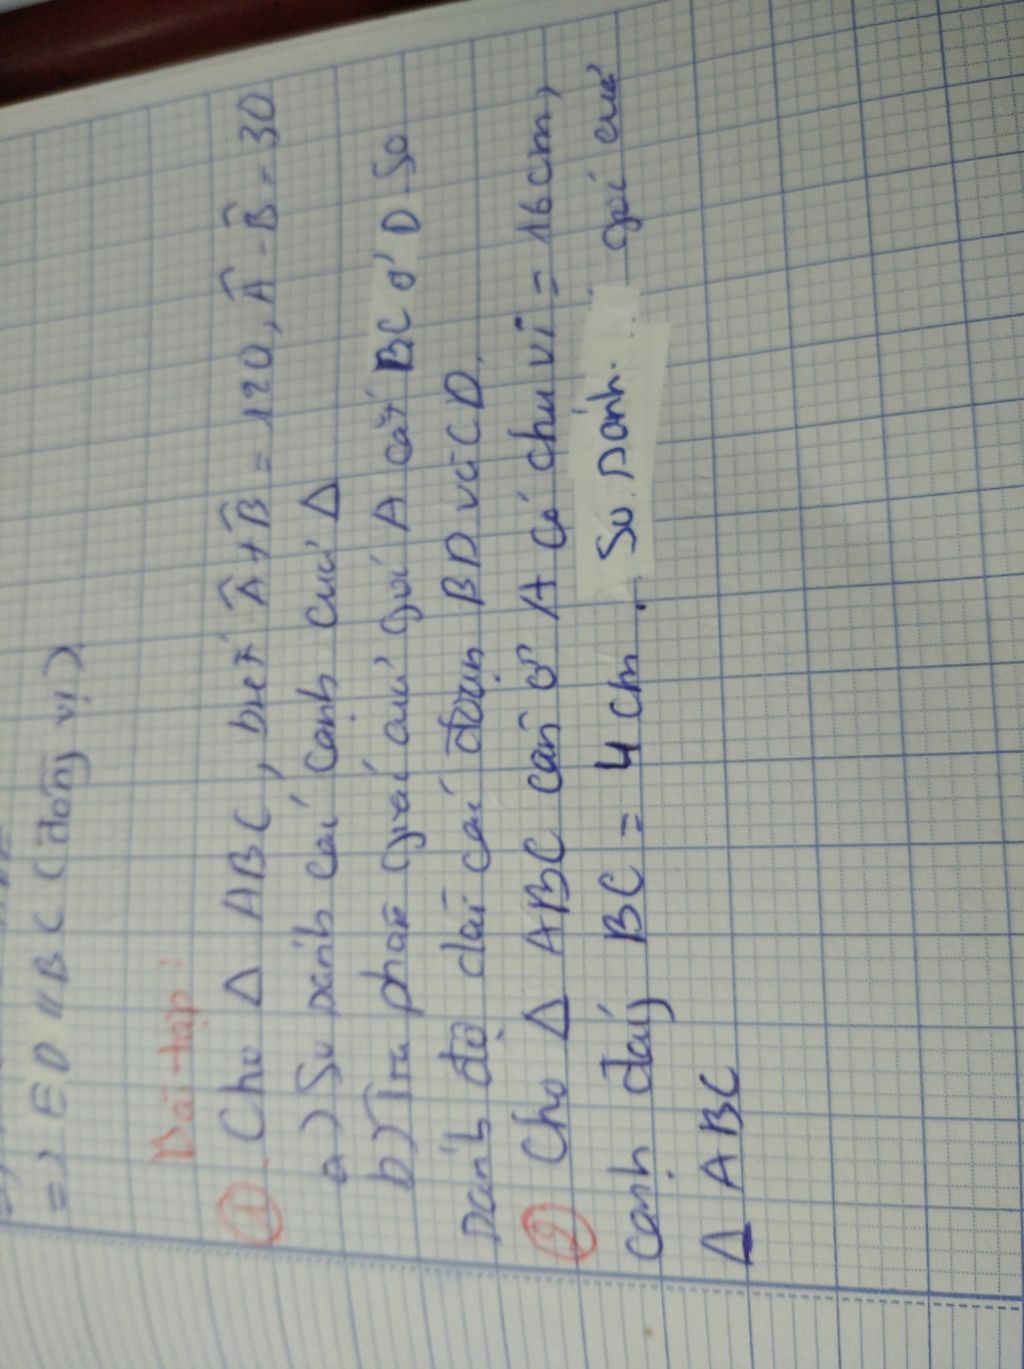 =) ED // BC (đồng vị)
Bài tập:
① Cho Δ ABC, biết Â + B̂ = 120, Â - B̂ = 30
a) So sánh các cạnh của Δ
b) Tia phân giác của góc A cắt BC ở D. So
sánh độ dài các đoạn BD và CD.
② Cho Δ ABC cân ở A có chu vi = 16cm,
cạnh đáy BC = 4 cm. So sánh. góc của
Δ ABC